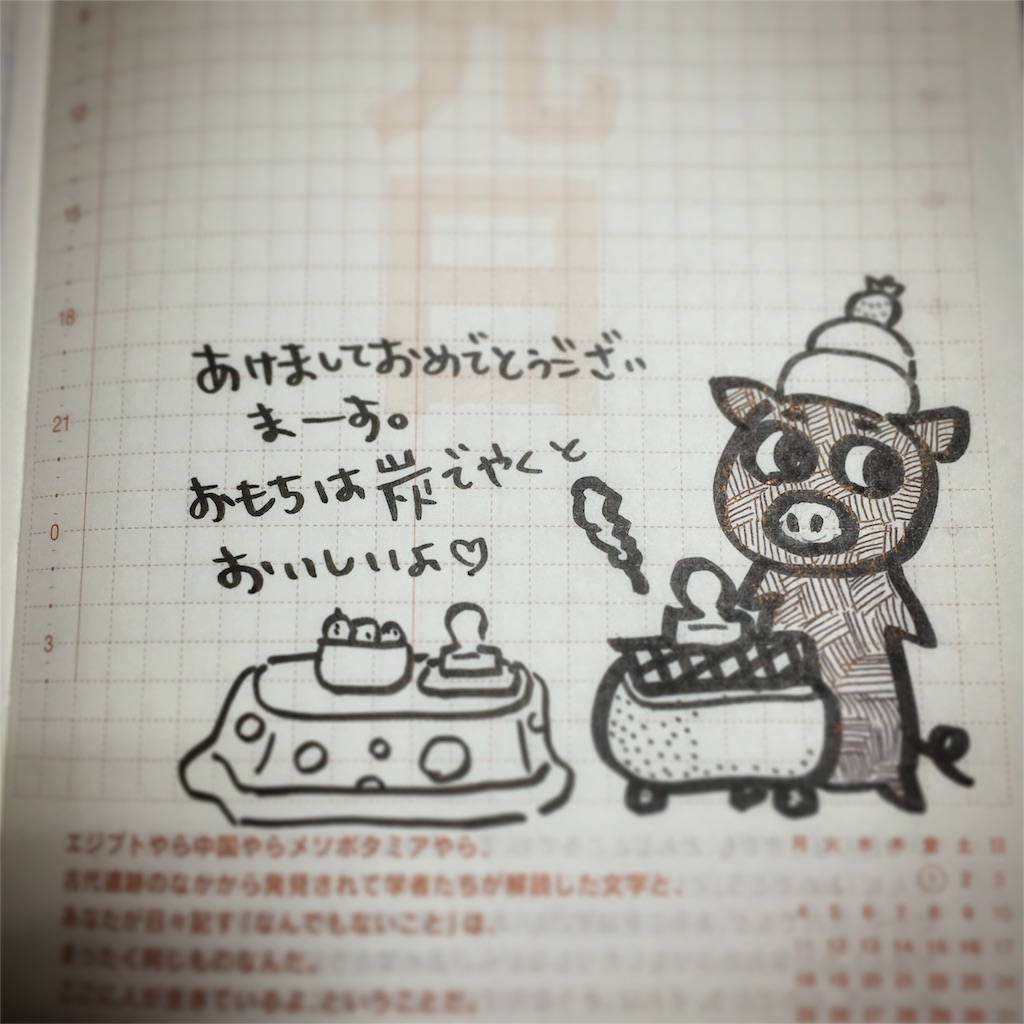 元日
12
15
18
21
0
3
あけましておめでとうござい
まーす。
おもちは炭でやくと
おいしいよ♡
エジプトやら中国やらメソポタミアやら、
古代遺跡のなかから発見されて学者たちが解読した文字と、
あなたが日々記す「なんでもないこと」は、
まったく同じものなんだ。
ここに人が生きているよ、ということだ。
月 火 水 木 金 土 日
① 2 3
4 5 6 7 8 9 10
11 12 13 14 15 16 17
18 19 20 21 22 23 24
25 26 27 28 29 30 31